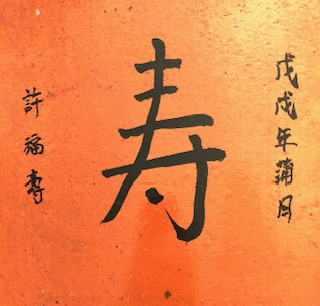 戊戌年蒲月
寿
許福壽